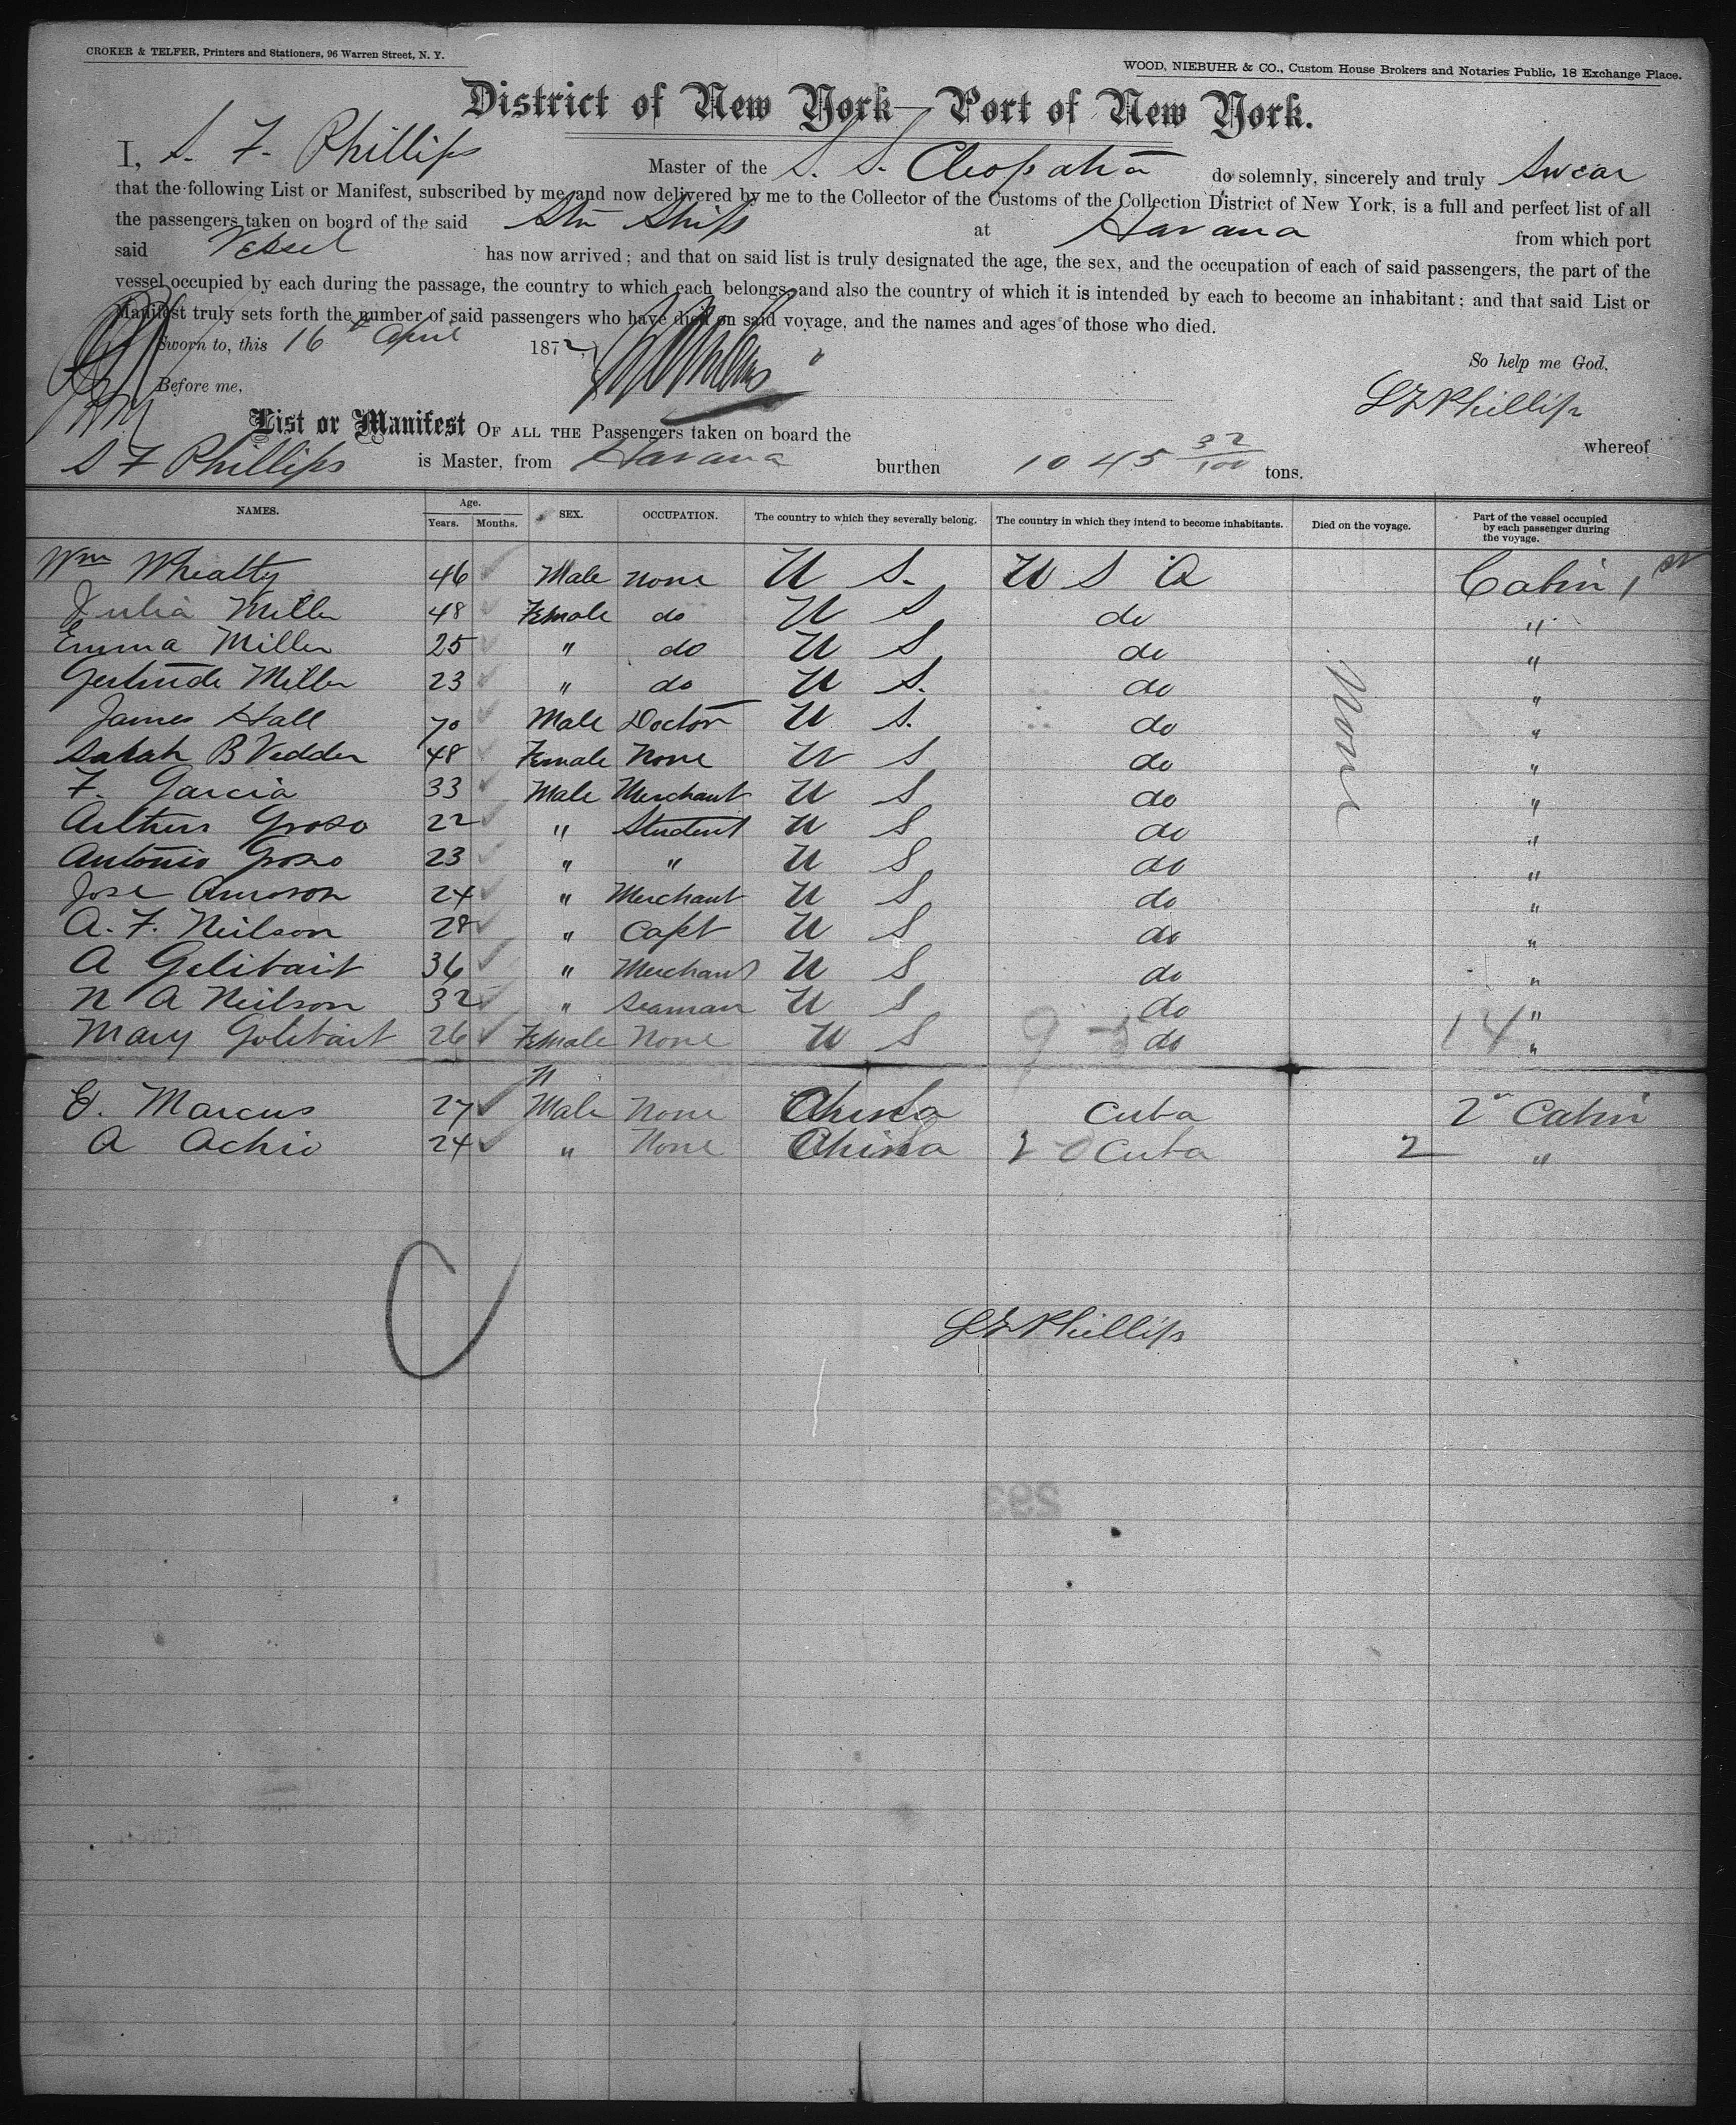 CROKER & TELFER, Printers and Stationers, 96 Warren Street, N. Y.
WOOD, NIEBUHR & CO., Custom House Brokers and Notaries Public, 18 Exchange Place.
District of New York—Port of New York.
I, S. F. Phillips Master of the S. S. Cleopatra do solemnly, sincerely and truly Swear
that the following List or Manifest, subscribed by me, and now delivered by me to the Collector of the Customs of the Collection District of New York, is a full and perfect list of all
the passengers taken on board of the said Stm Ship at Havana from which port
said Vessel has now arrived; and that on said list is truly designated the age, the sex, and the occupation of each of said passengers, the part of the
vessel occupied by each during the passage, the country to which each belongs, and also the country of which it is intended by each to become an inhabitant; and that said List or
Manifest truly sets forth the number of said passengers who have died on said voyage, and the names and ages of those who died.
Sworn to, this 16th April 1872,
So help me God,
Before me,
S F Phillips
List or Manifest OF ALL THE Passengers taken on board the whereof
S F Phillips is Master, from Havana burthen 1045 32/100 tons.
NAMES. Age. Years. Months. SEX. OCCUPATION. The country to which they severally belong. The country in which they intend to become inhabitants. Died on the voyage. Part of the vessel occupied by each passenger during the voyage.
Wm Wheatly 46 Male none U S. U S A Cabin 1st
Julia Miller 48 Female do U S do "
Emma Miller 25 " do U S do "
Gertrude Miller 23 " do U S. do "
James Hall 70 Male Doctor U S. do "
Sarah B Vedder 48 Female None U S do "
F. Garcia 33 Male Merchant U S do "
Arthur Groso 22 " Student U S do "
Antonio Groso 23 " " U S do "
Jose 24 " Merchant U S do "
A. F. Neilson 28 " Capt U S do "
A Gelibait 36 " Merchant U S do "
N A Neilson 32 " Seaman U S do "
Mary Golibait 26 Female None U S do "
None
9 - 5
14
E. Marcus 27 Male None China Cuba 2d Cabin
A Achio 24 " None China 2 - 0 Cuba 2 "
S F Phillips
293